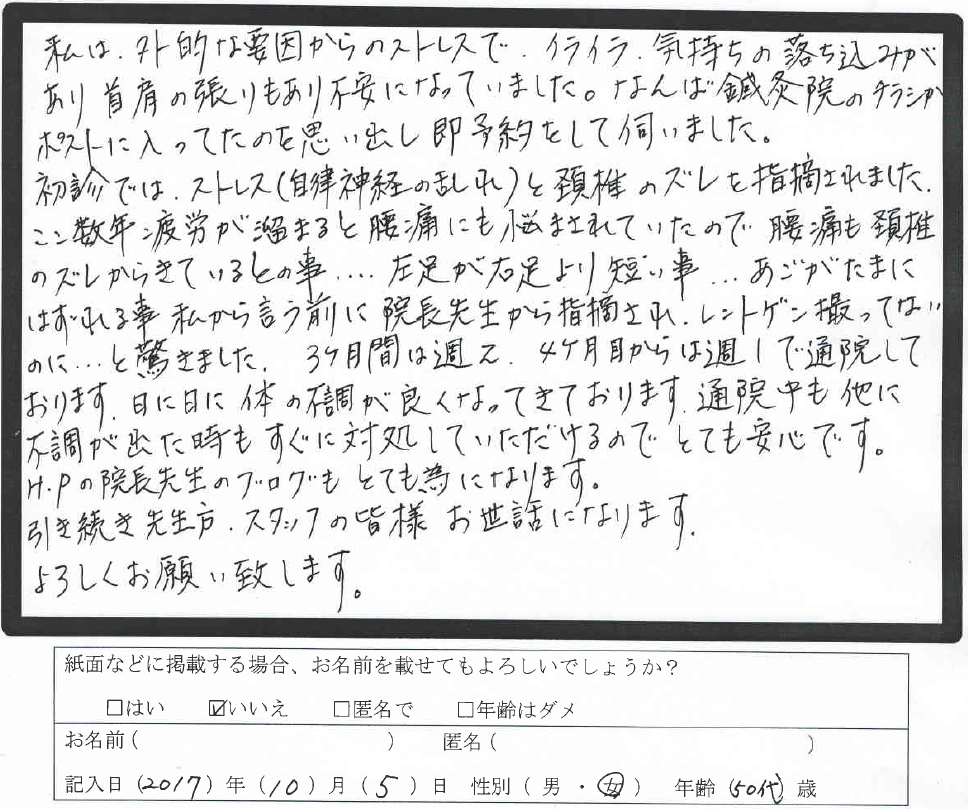 私は、外的な要因からのストレスで、イライラ、気持ちの落ち込みが
あり首肩の張りもあり不安になっていました。なんば鍼灸院のチラシが
ポストに入ってたのを思い出し即予約をして伺いました。
初診では、ストレス(自律神経の乱れ)と頚椎のズレを指摘されました、
ここ数年疲労が溜まると腰痛にも悩まされていたので腰痛も頚椎
のズレからきているとの事....左足が右足より短い事...あごがたまに
はずれる事私から言う前に院長先生から指摘され、レントゲン撮ってない
のに...と驚きました、3ヶ月間は週2、4ケ月目からは週1で通院して
おります、日に日に体の不調が良くなってきております、通院中も他に
不調が出た時もすぐに対処していただけるのでとても安心です。
H.Pの院長先生のブログもとても為になります。
引き続き先生方、スタッフの皆様お世話になります、
よろしくお願い致します。
紙面などに掲載する場合、お名前を載せてもよろしいでしょうか?
□はい ☑いいえ □匿名で □年齢はダメ
お名前( ) 匿名( )
記入日(2017)年(10)月(5)日 性別(男・女) 年齢(50代)歳